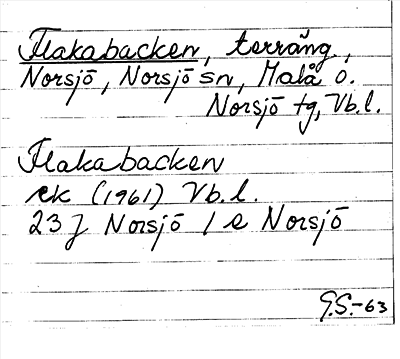 Flakabacken, terräng,
Norsjö, Norsjö sn, Malå o.
Norsjö tg, Vb.l.
Flakabacken
ek (1961) Vb.l.
23 J Norsjö / e Norsjö
G.S.-63